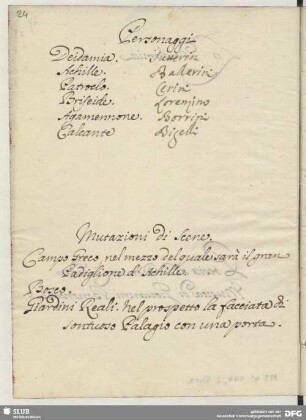 24
Personaggi
Deidamia. Sutterin
Achille. Ballarin
Patroclo. Cerin
Briseide. Loremino
Agamennone. Borrin
Calcante Bigelli
Mutazioni di Scene.
Campo Greco, nel mezzo del quale sarà il gran
Padiglione d'Achille.
Bosco.
Giardini Reali. Nel prospetto la facciata di
sontuoso Palagio con una porta.
SLUB
Wir führen Wissen.
gefördert von der
Deutschen Forschungsgemeinschaft
DFG